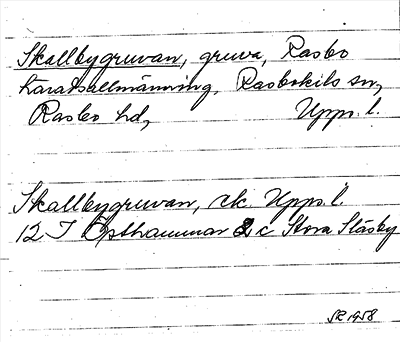 Skallbygruvan, gruva, Rasbo
häradsallmänning, Rasbokils sn,
Rasbo hd, Upps. l.
Skallbygruvan, ek. Upps. l.
12 I Östhammar 2 c Stora Stäsby
SR 1958